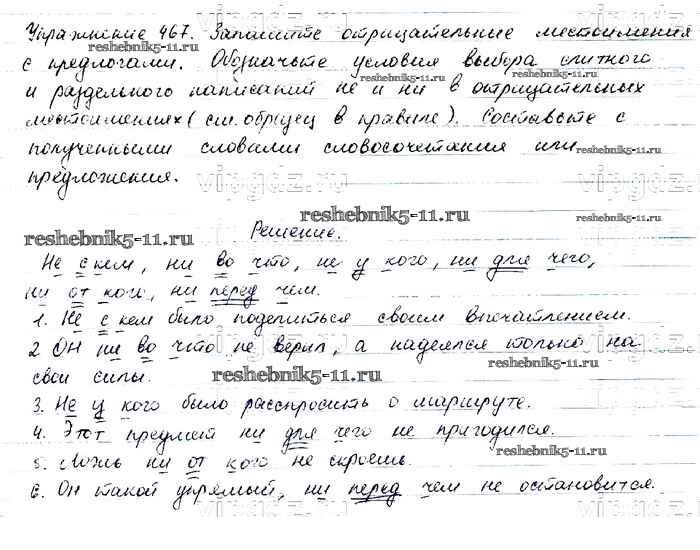 Упражнение 467. Запишите отрицательные местоимения
с предлогами. Обозначьте условия выбора слитного
и раздельного написаний не и ни в отрицательных
местоимениях (см. образец в правиле). Составьте с
полученными словами словосочетания или
предложения.
Решение.
Не с кем, ни во что, не у кого, ни для чего,
ни от кого, ни перед чем.
1. Не с кем было поделиться своим впечатлением.
2 Он ни во что не верил, а надеялся только на
свои силы.
3. Не у кого было расспросить о маршруте.
4. Этот предмет ни для чего не пригодился.
5. Ложь ни от кого не скроешь.
6. Он такой упрямый, ни перед чем не остановится.
reshebnik5-11.ru
reshebnik5-11.ru
reshebnik5-11.ru
reshebnik5-11.ru
reshebnik5-11.ru
reshebnik5-11.ru
reshebnik5-11.ru
reshebnik5-11.ru
reshebnik5-11.ru